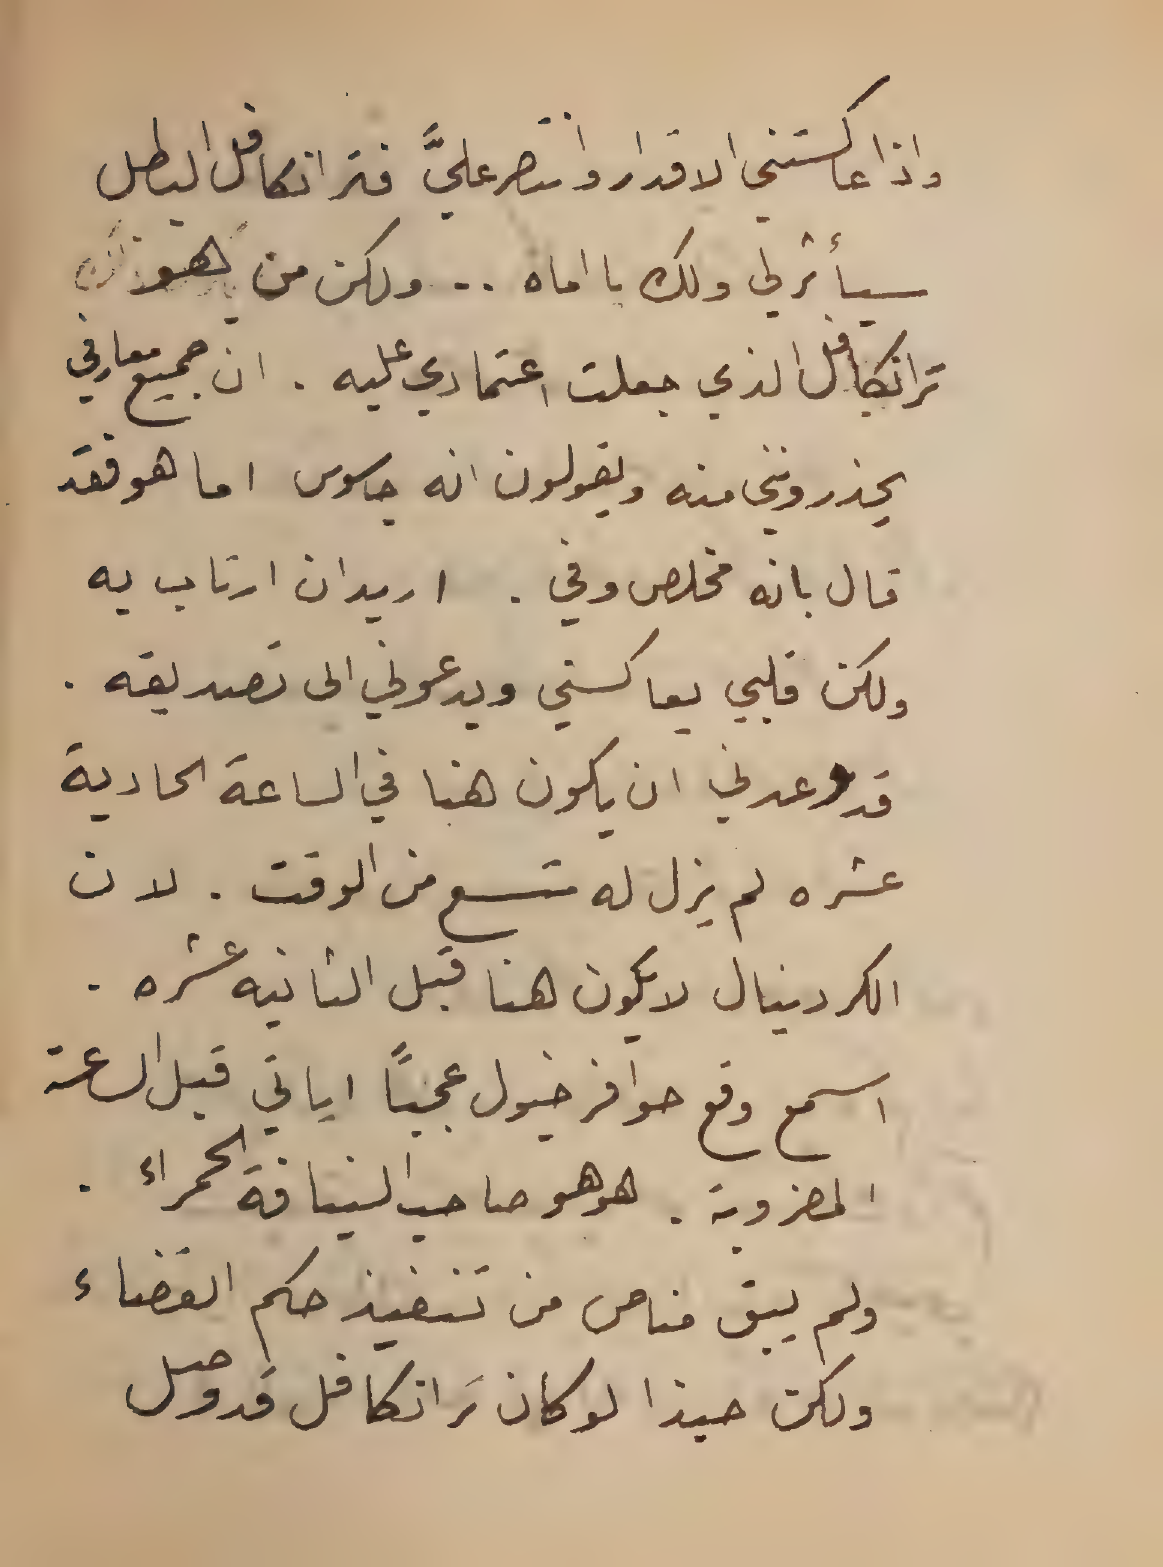 واذا عاكستني الاقدار وانتصر عليَّ فترانكافل البطل
سيأثر لي ولك يا اماه .. ولكن من هو
ترانكافل الذي جعلت اعتمادي عليه . ان جميع معارفي
يحذرونني منه ويقولون انه جاسوس اما هو فقد
قال بانه مخلص وفي . اريد ان ارتاب به
ولكن قلبي يعاكسني ويدعوني الى تصديقه .
قد وعدني ان يكون هنا في الساعة الحادية
عشره لم يزل له متسع من الوقت . لان
الكردينال لا يكون هنا قبل الثانيه عشره .
اسمع وقع حوافر خيول عجباً اياتي قبل الساعة
المضروبة . هوهو صاحب القيافة الحمراء .
ولم يبق مناص من تنفيذ حكم القضاء
ولكن حبذا لو كان ترانكافل قد وصل